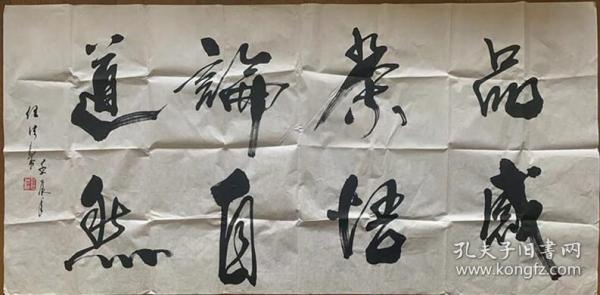 品茶論道
感悟自然
孔夫子旧书网
www.kongfz.com